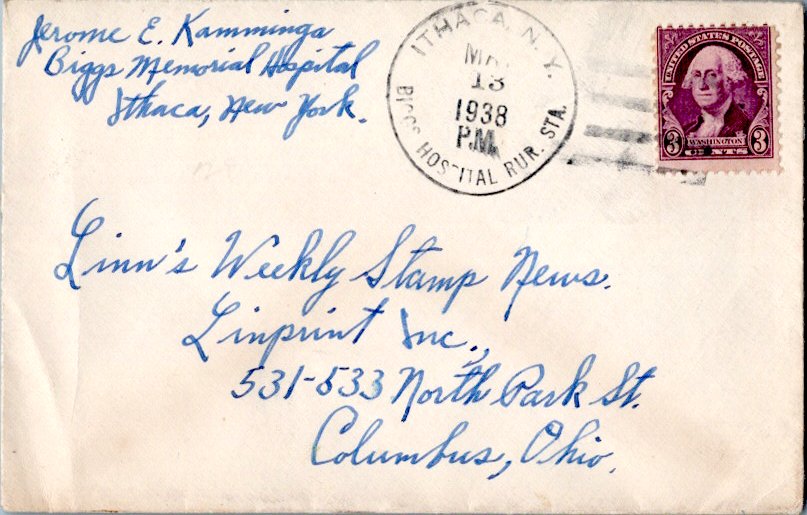 Jerome E. Kamminga
Biggs Memorial Hospital
Ithaca, New York.
ITHACA, N.Y.
13
1938
P.M.
HOSPITAL RUR. STA.
UNITED STATES POSTAGE
WASHINGTON
3 CENTS 3
Linn's Weekly Stamp News.
Linprint Inc.,
531-533 North Park St.
Columbus, Ohio.